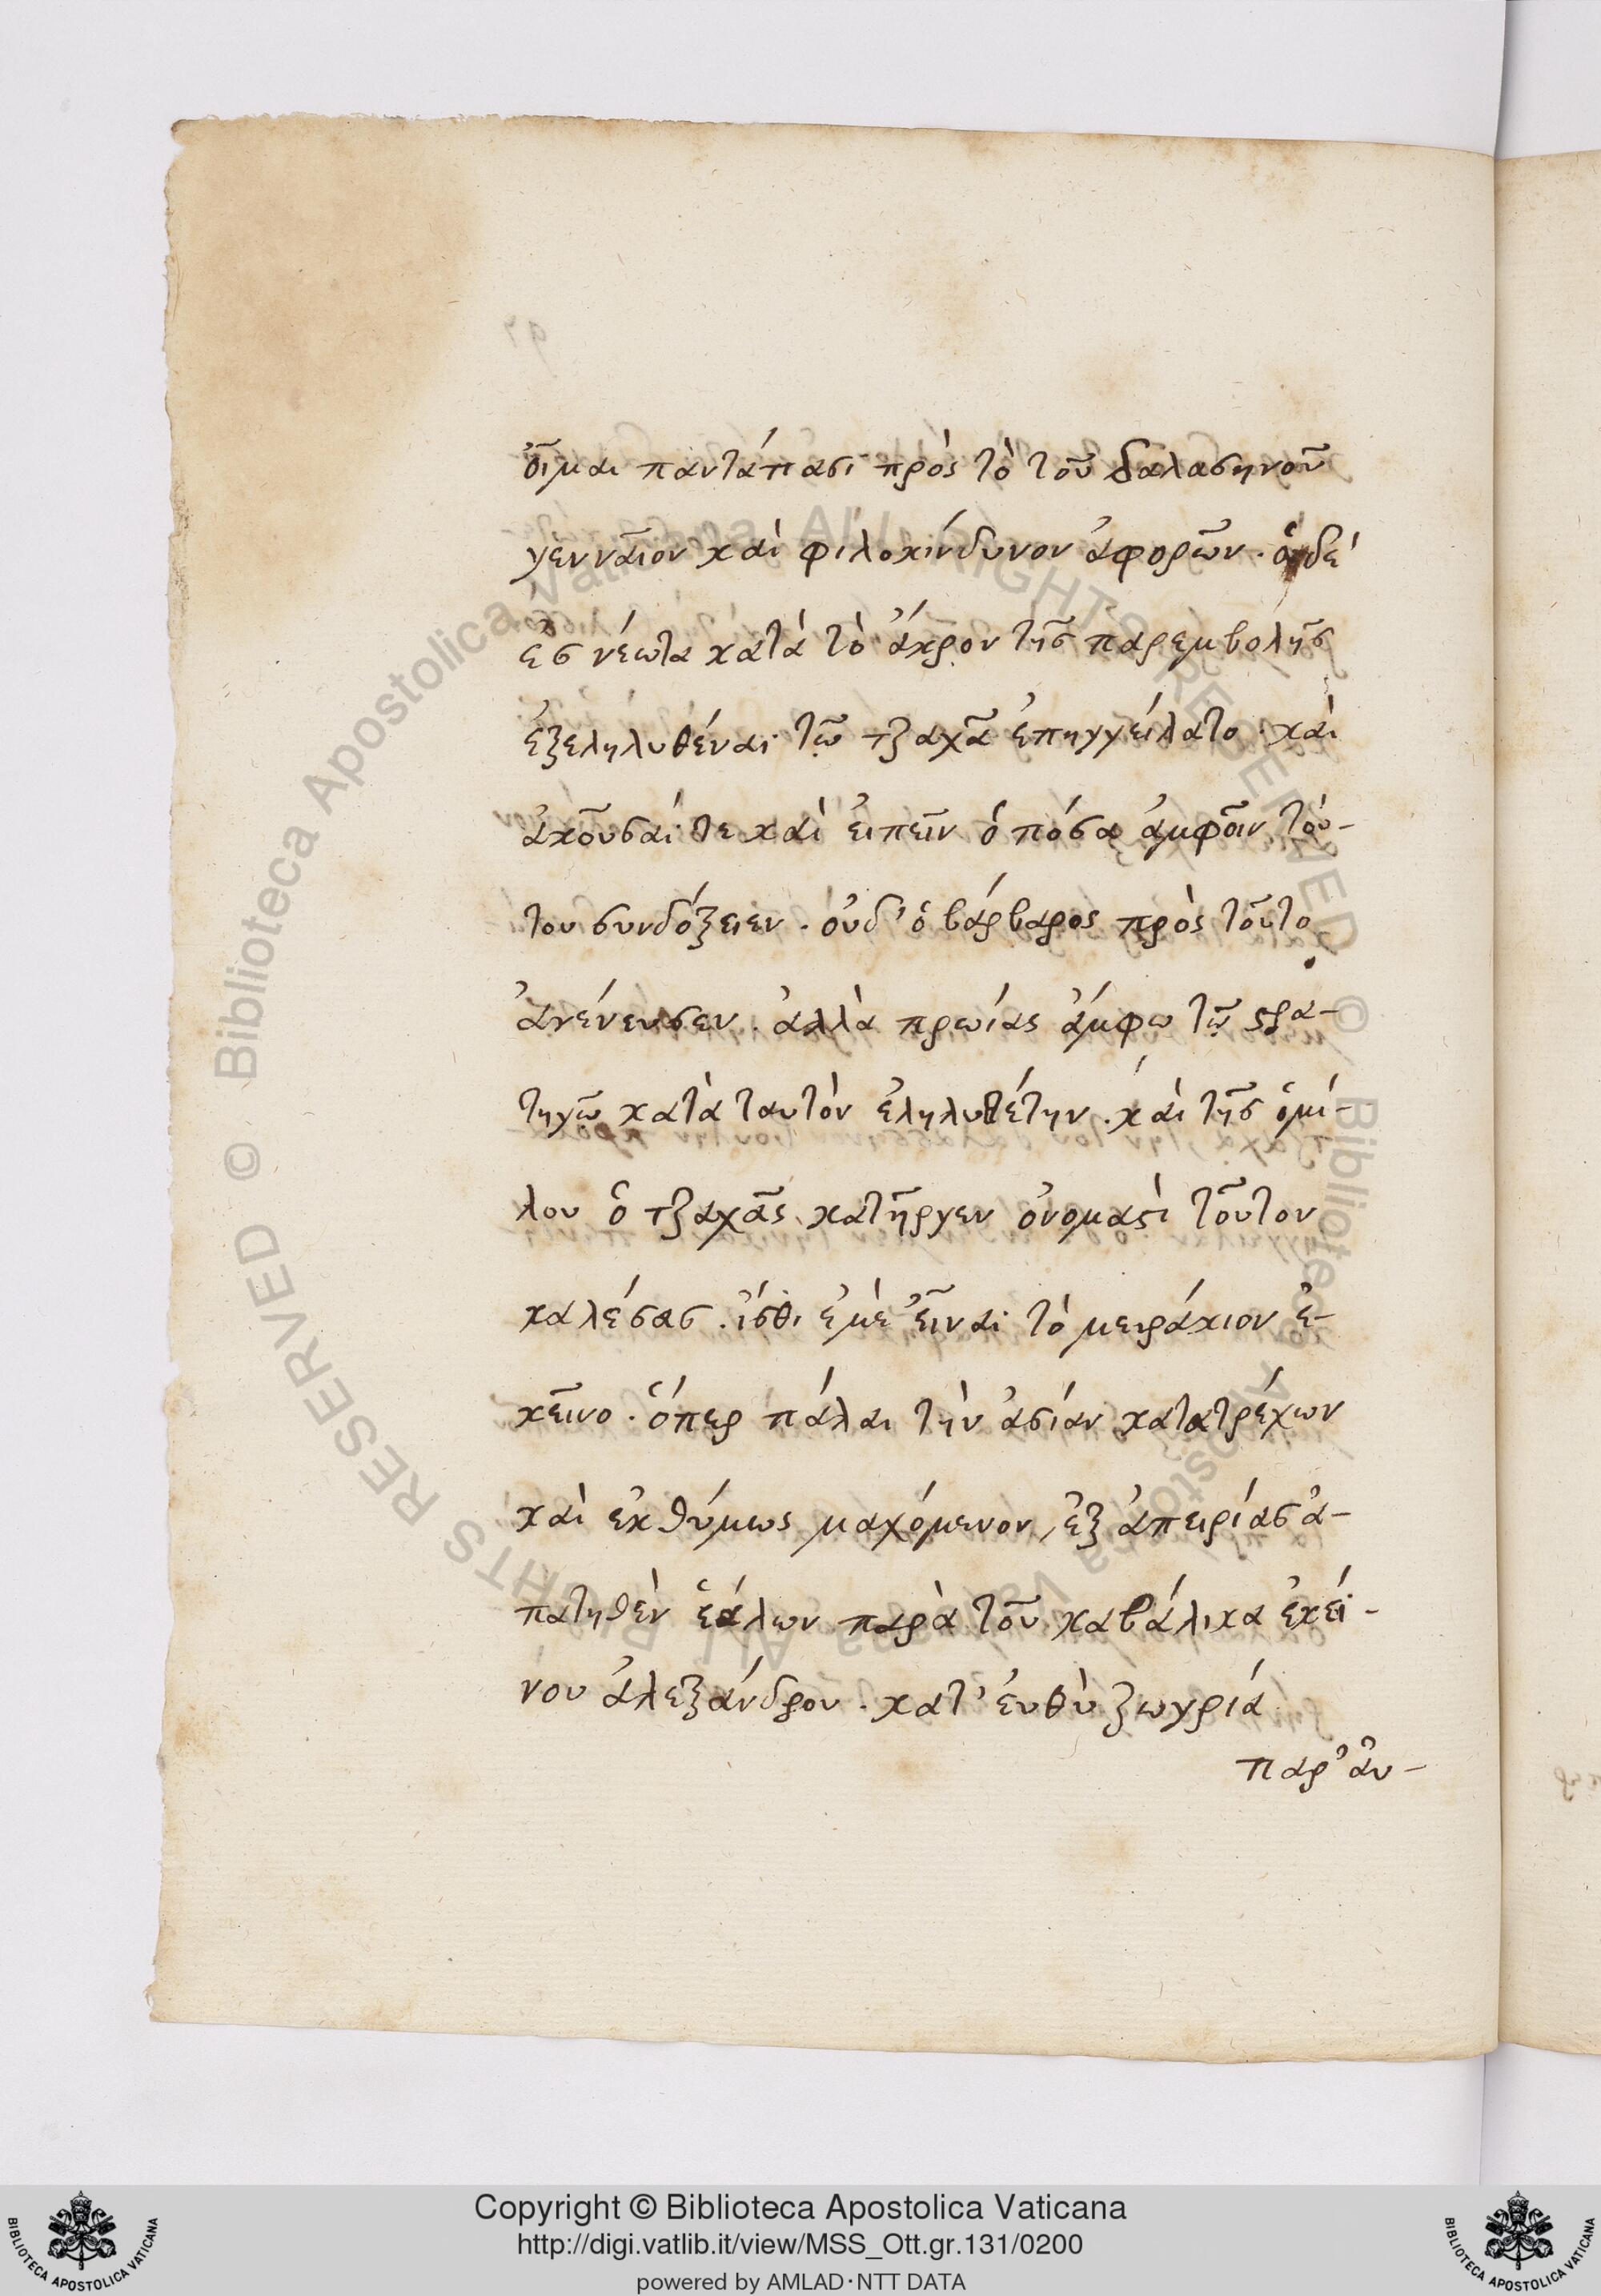 οἶμαι παντάπασι πρὸς τὸ τοῦ δαλασηνοῦ
γενναῖον καὶ φιλοκίνδυνον ἀφορῶν. ὁ δὲ
ἐς νέωτα κατὰ τὸ ἄκρον τῆς παρεμβολῆς
ἐξεληλυθέναι τῷ τζαχᾷ ἐπηγγείλατο. καὶ
ἀκοῦσαί τε καὶ εἰπεῖν ὁπόσα ἀμφοῖν τού-
του συνδόξειεν. οὐδ' ὁ βάρβαρος πρὸς τοῦτο
ἀνένευσεν. ἀλλὰ πρωίας ἄμφω τῷ στρα-
τηγῷ κατὰ ταυτὸν ἐληλυθέτην. καὶ τῆς ὁμι-
λου ὁ τζαχᾶς κατῆρχεν ὀνομαστὶ τοῦτον
καλέσας. ἴσθι ἐμὲ εἶναι τὸ μειράκιον ἐ-
κεῖνο. ὅπερ πάλαι τὴν ἀσίαν κατατρέχων
καὶ ἐκθύμως μαχόμενον, ἐξ ἀπειρίας ἀ-
πατηθὲν ἑάλων παρὰ τοῦ καβάλικα ἐκεί-
νου ἀλεξάνδρου. κατ' εὐθὺ ζωγρία
παρ' αὐ-
Copyright © Biblioteca Apostolica Vaticana
http://digi.vatlib.it/view/MSS_Ott.gr.131/0200
powered by AMLAD・NTT DATA
BIBLIOTECA APOSTOLICA VATICANA
BIBLIOTECA APOSTOLICA VATICANA
© Biblioteca Apostolica Vaticana ALL RIGHTS RESERVED © Biblioteca Apostolica Vaticana ALL RIGHTS RESERVED